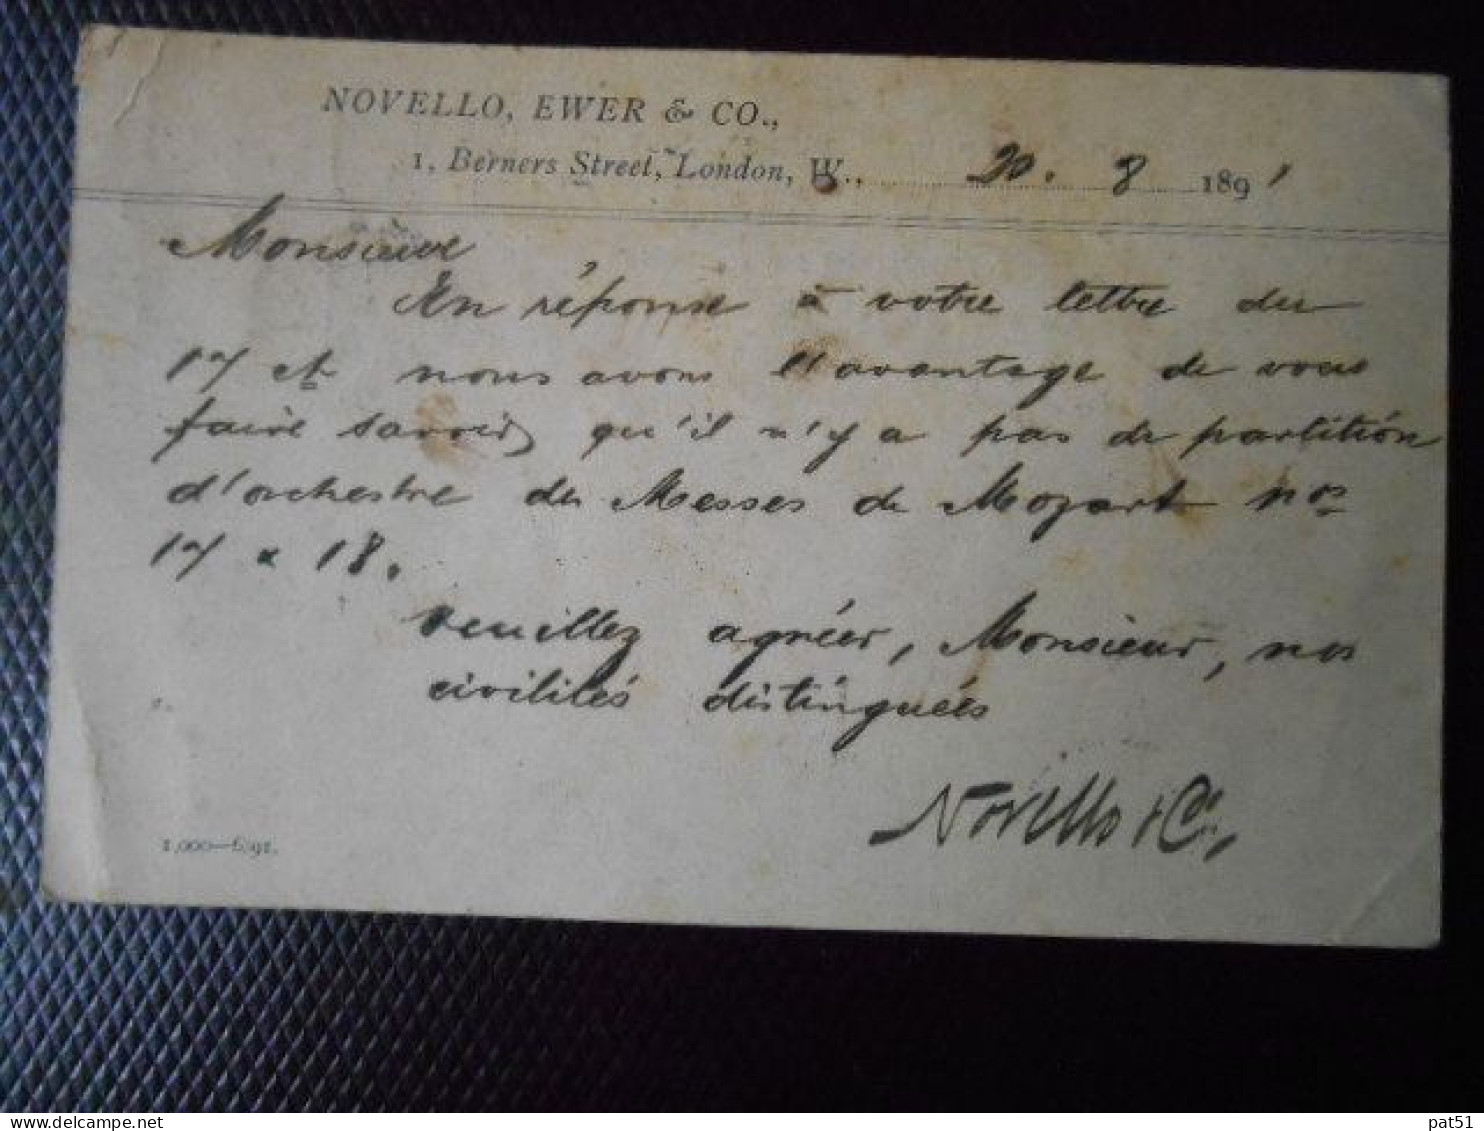 NOVELLO, EWER & CO.,
1, Berners Street, London, W., 20. 8 1891
Monsieur
En réponse à votre lettre du
17 ct nous avons l'avantage de vous
faire savoir qu'il n'y a pas de partition
d'orchestre des Messes de Mozart nos
17 & 18.
Veuillez agréer, Monsieur, nos
civilités distinguées
Novello & Co.,
1,000—6/91.
delcampe.net
pat51